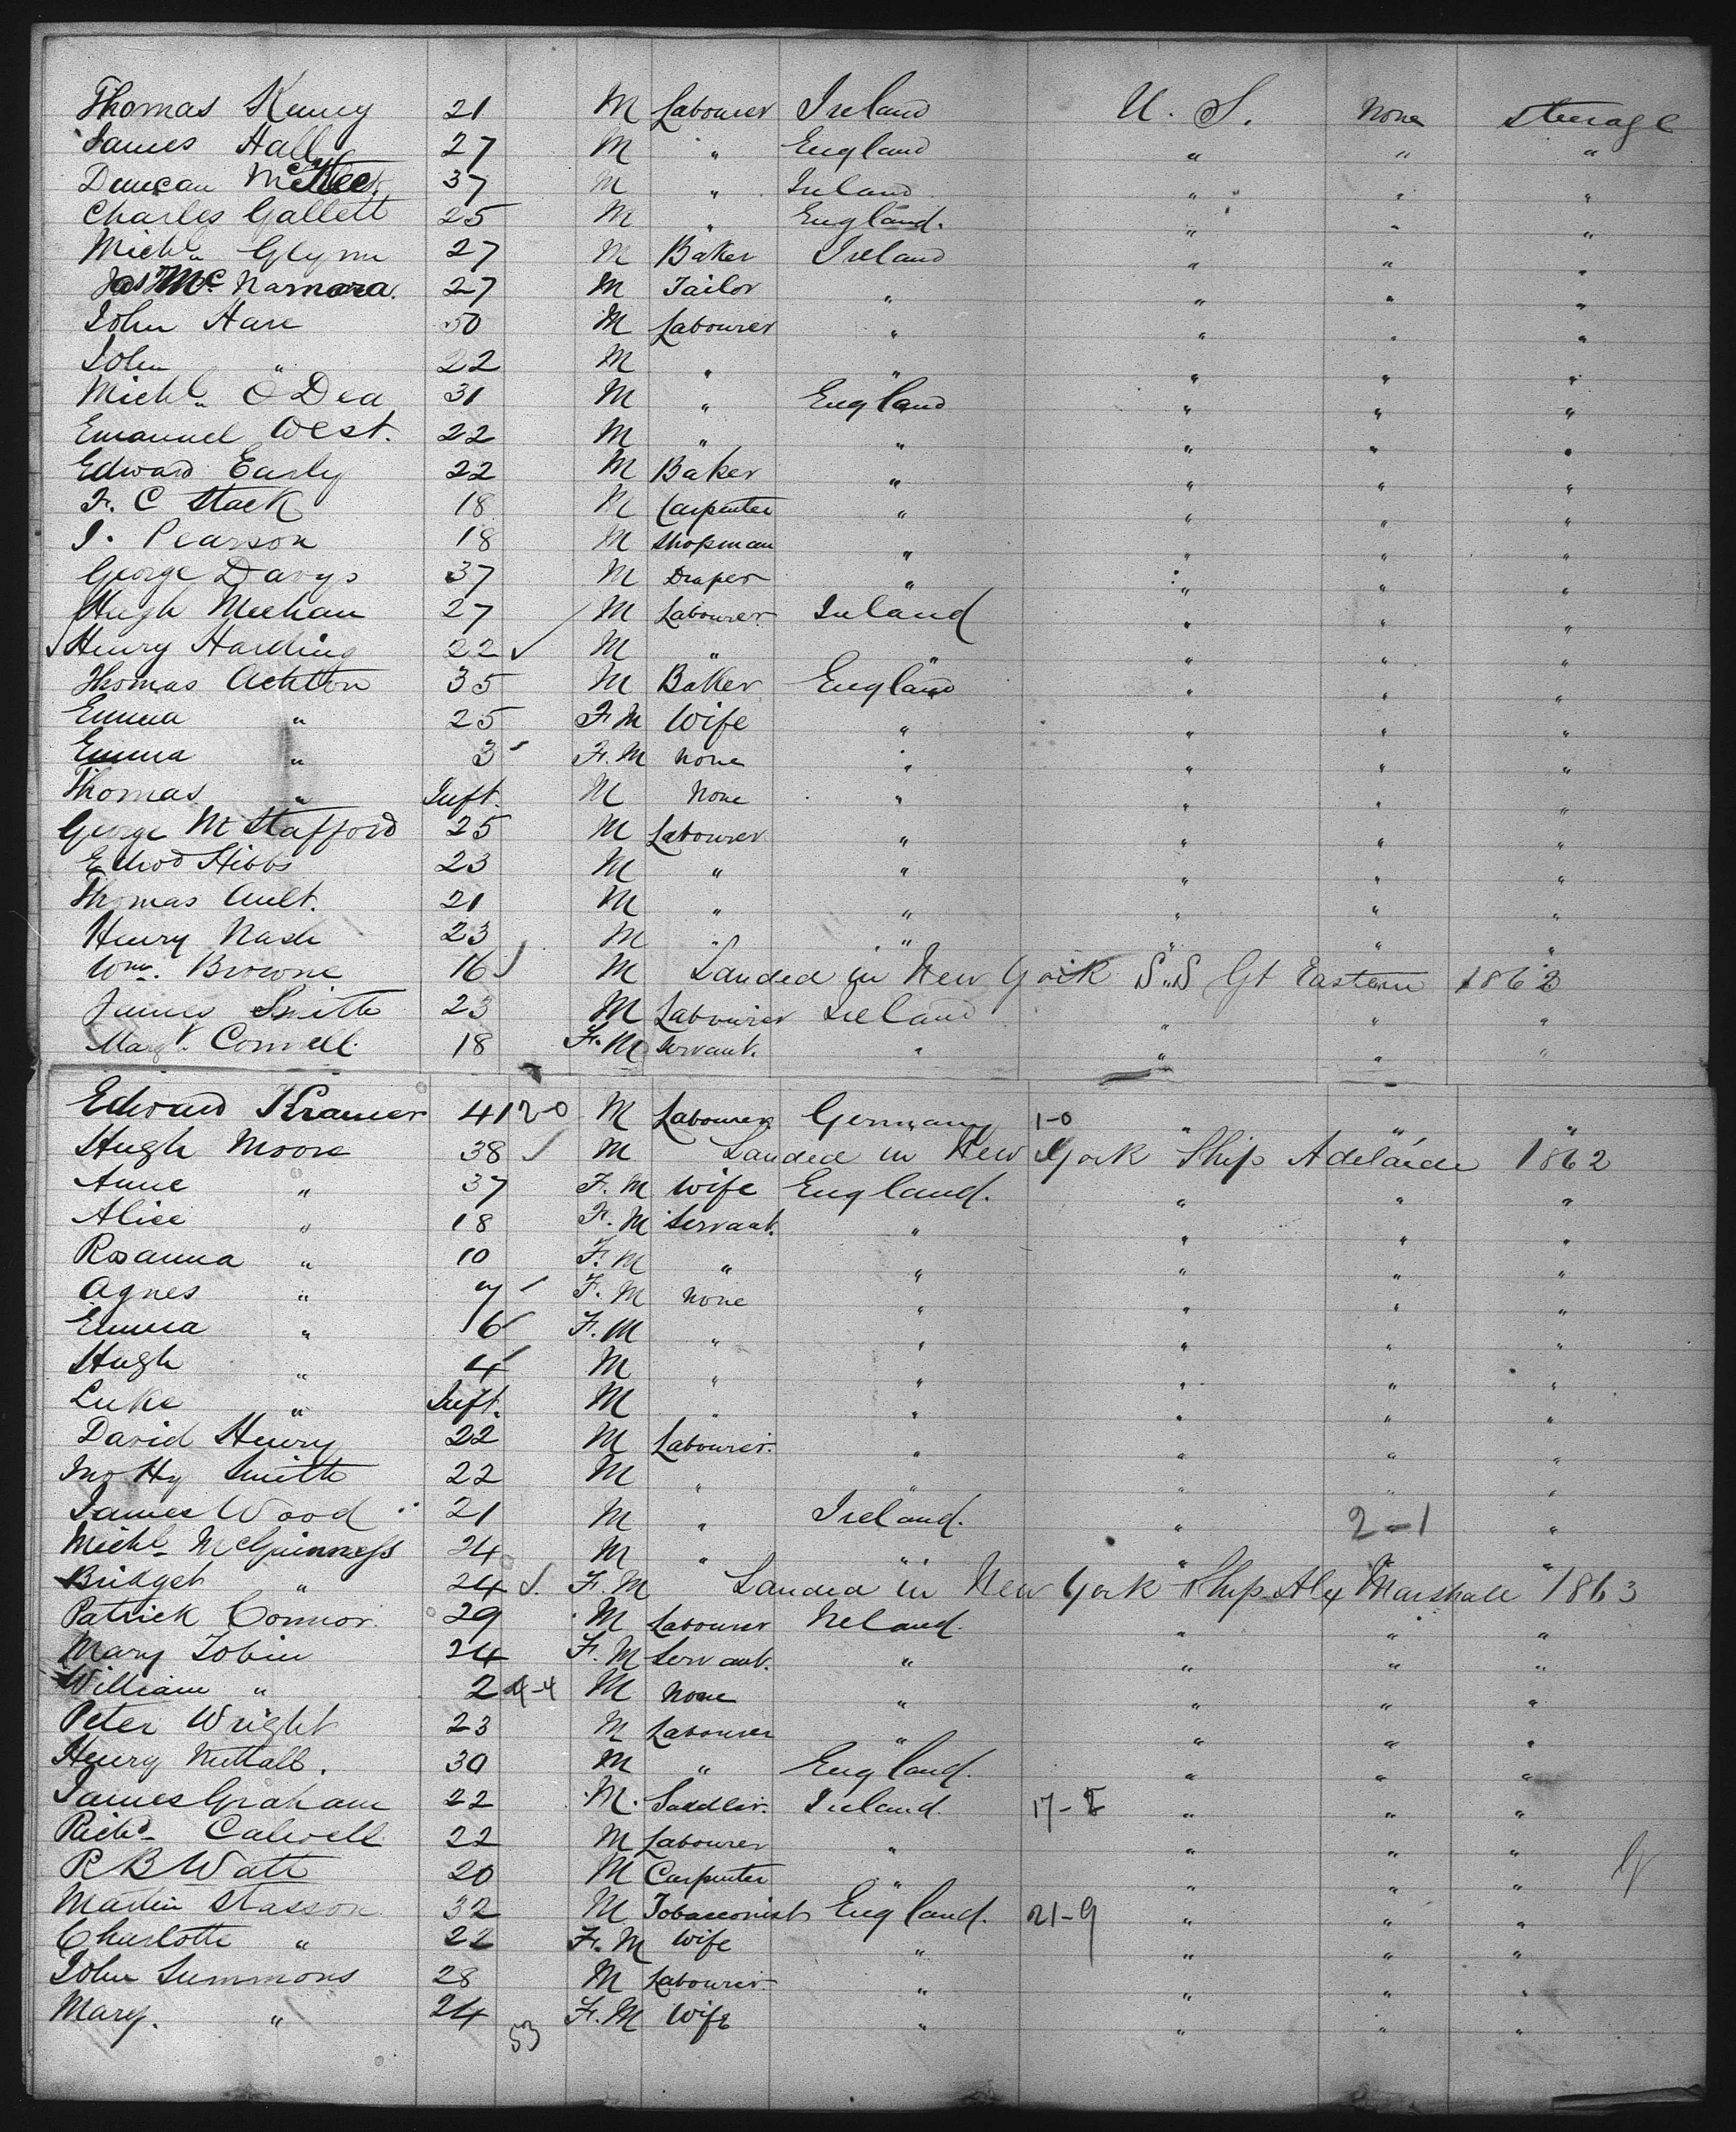 Thomas Kenny 21 M Labourer Ireland U. S. None Steerage
James Hall 27 M " England " " "
Duncan 37 M " Ireland " " "
Charles Gallett 25 M " England. " " "
Michl Glynn 27 M Baker Ireland " " "
Jas Mc Namara. 27 M Tailor " " " "
John Hare 50 M Labourer " " " "
John " 22 M " " " " "
Michl O Dea 31 M " England " " "
Emanuel West. 22 M " " " " "
Edward Early 22 M Baker " " " "
F. C Stack 18 M Carpenter " " " "
J. Pearson 18 M Shopman " " " "
George Davys 37 M Draper " " " "
Hugh Meehan 27 M Labourer Ireland " " "
Henry Harding 22 M " " " " "
Thomas Achtton 35 M Baker England " " "
Emma " 25 F M Wife " " " "
Emma " 3 F. M None " " " "
Thomas " Inft. M None " " " "
George M Stafford 25 M Labourer " " " "
Edwd Hibbs 23 M " " " " "
Thomas Ault. 21 M " " " " "
Henry Nash 23 M " " " " "
Wm. Browne 16 M Landed in New York S.S Gt Eastern 1862
James Smith 23 M Labourer Ireland " " "
Margt. Connell 18 F. M Servant. " " " "
Edward Kramer 41 2-0 M Labourer Germany 1-0 " " "
Hugh Moore 38 M Landed in New York Ship Adelaide 1862
Anne " 37 F. M Wife England. " " "
Alice " 18 F. M Servant. " " " "
Rosanna " 10 F. M " " " " "
Agnes " 7 F. M None " " " "
Emma " 6 F. M " " " " "
Hugh " 4 M " " " " "
Luke " Inft. M " " " " "
David Henry 22 M Labourer. " " " "
Jno Hy Smith 22 M " " " " "
James Wood 21 M " Ireland. " 2-1 "
Michl McGuinness 24 M " " " " "
Bridget " 24 F. M Landed in New York Ship Alex Marshall 1863
Patrick Connor. 29 M Labourer Ireland. " " "
Mary Tobin 24 F. M Servant. " " " "
William " 2 4-4 M None " " " "
Peter Wright 23 M Labourer " " " "
Henry Nuttall. 30 M " England. " " "
James Graham 22 M. Saddler. Ireland. 17-8 " " "
Richd Calwell 22 M Labourer " " " "
R B Watt 20 M Carpenter " " " "
Martin Stasson 32 M Tobacconist England. 21-9 " " "
Charlotte " 22 F. M Wife " " " "
John Summons 28 M Labourer. " " " "
Mary. " 24 F. M Wife " " " "
53